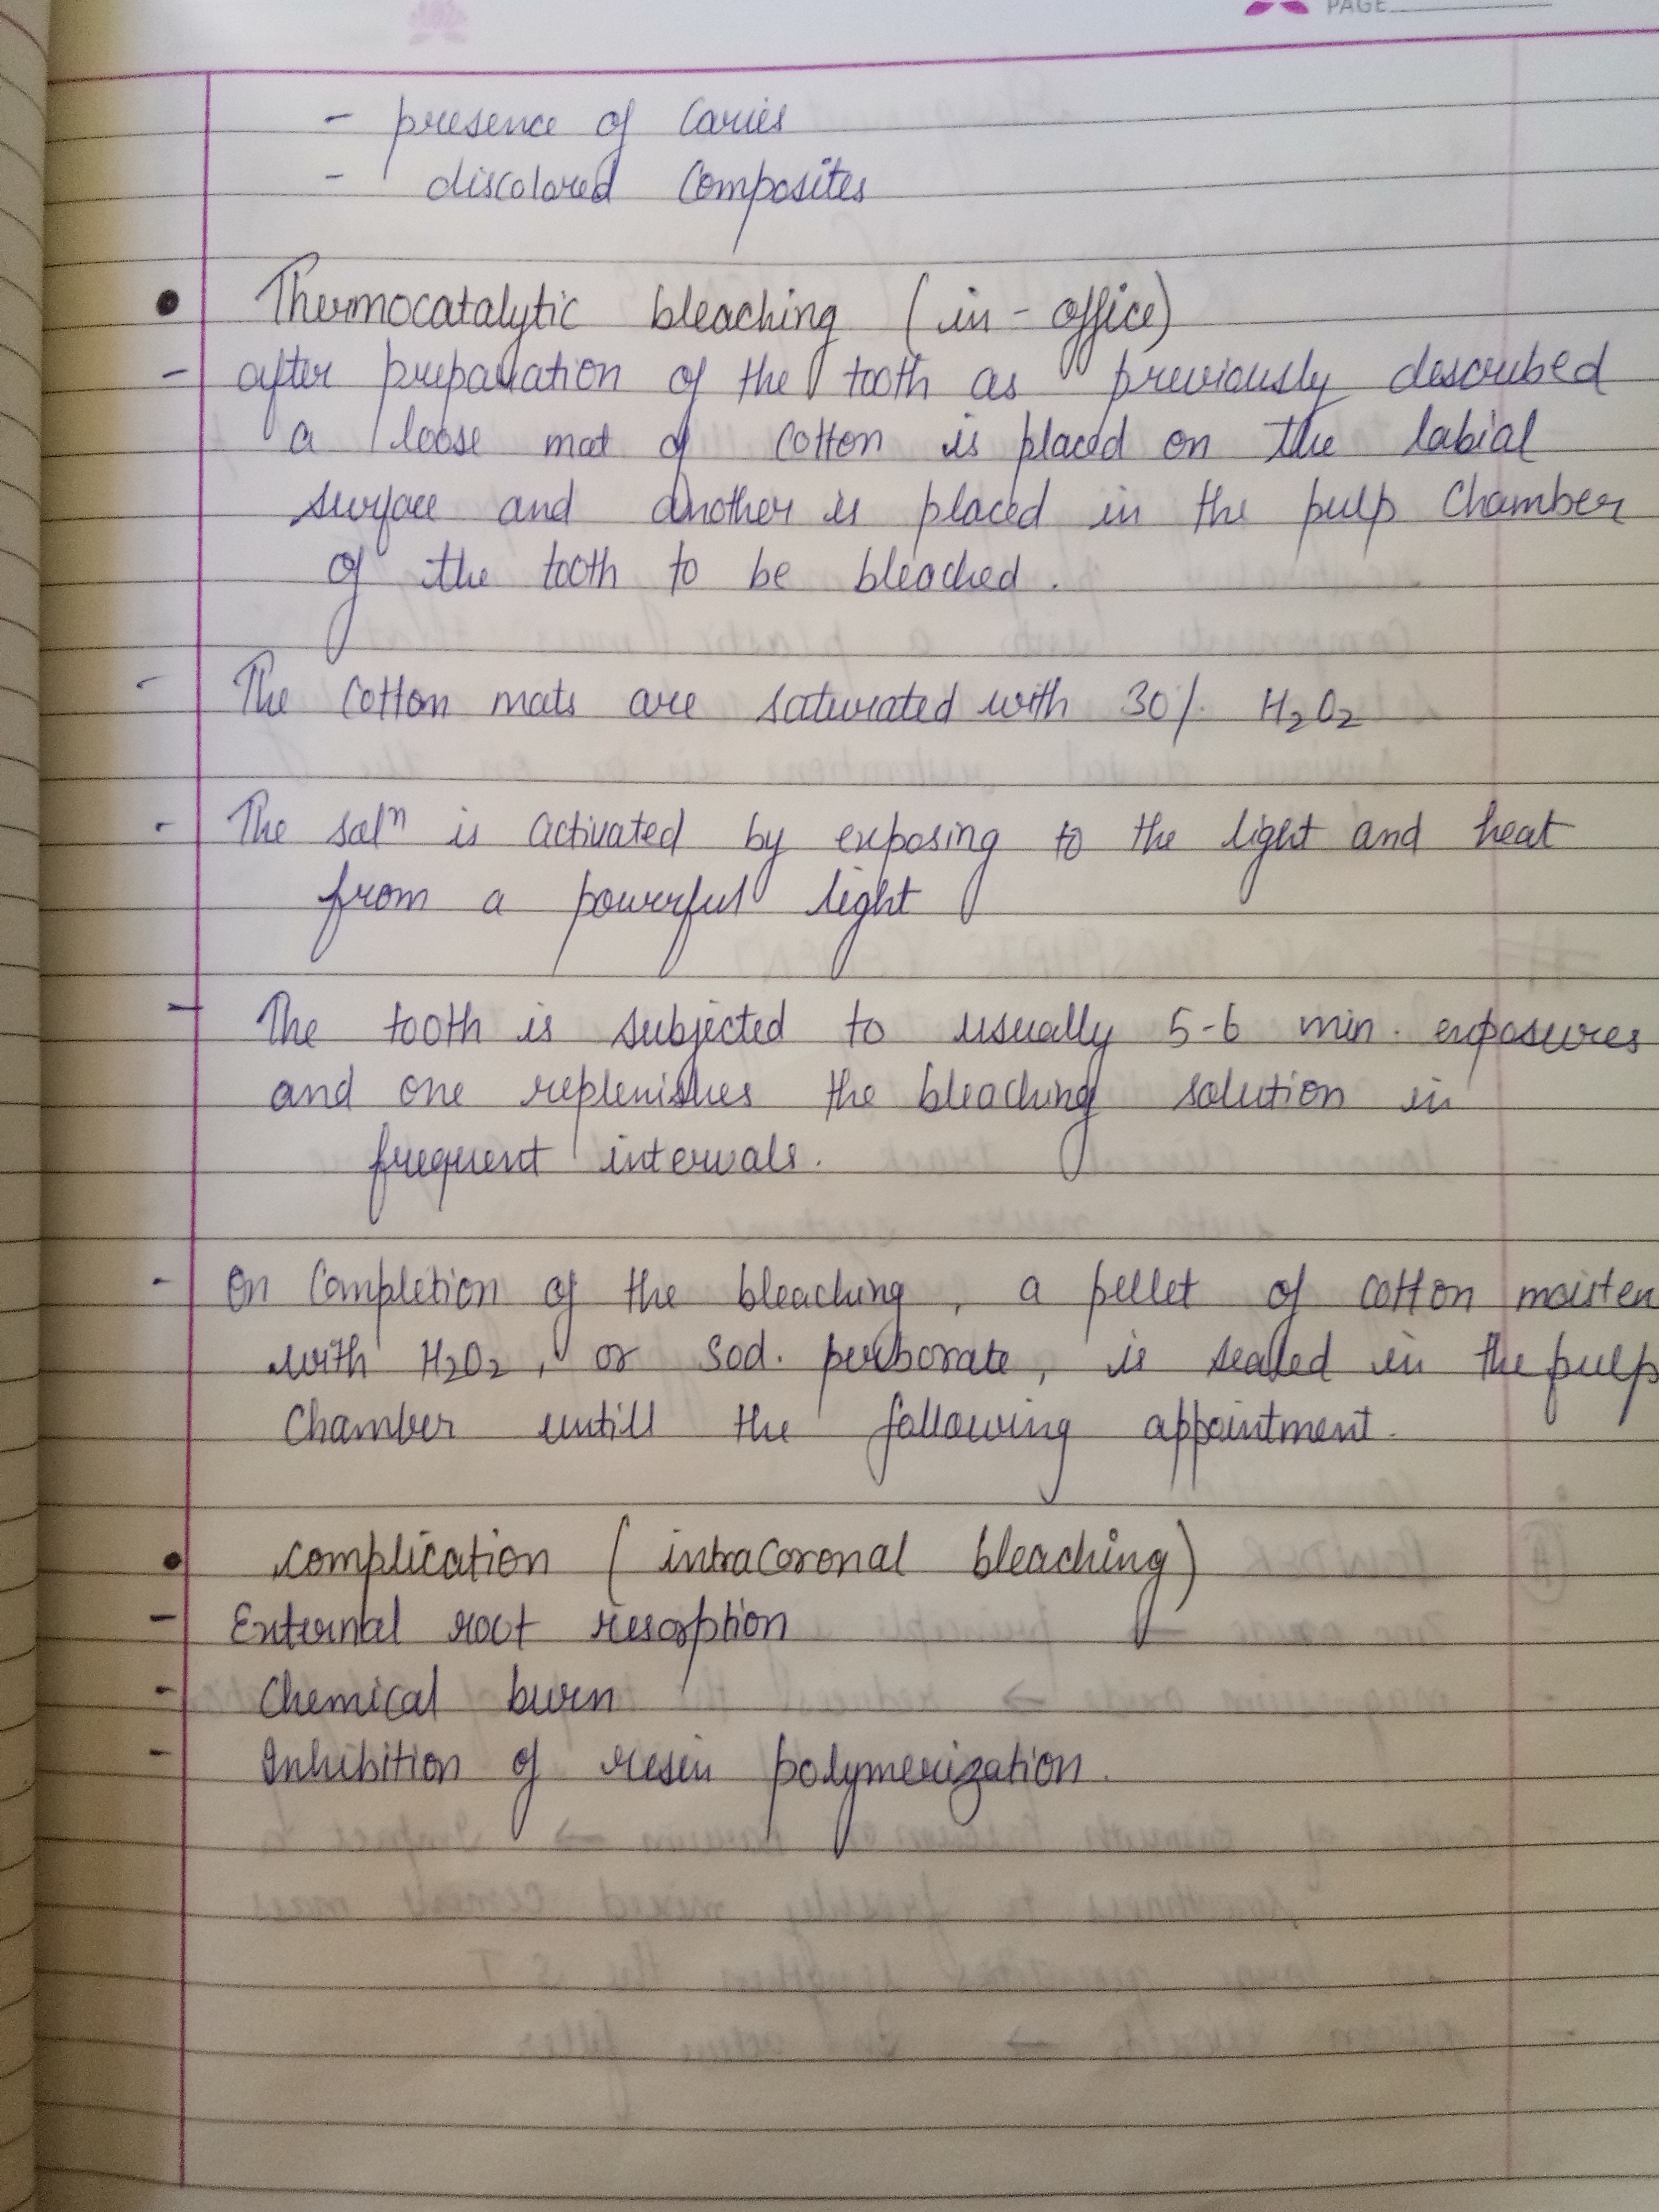 PAGE
- presence of caries
- discolored composites
• Thermocatalytic bleaching (in-office)
- after preparation of the tooth as previously described
a loose mat of cotton is placed on the labial
surface and another is placed in the pulp chamber
of the tooth to be bleached.
- The cotton mats are saturated with 30% H₂O₂
- The solⁿ is activated by exposing to the light and heat
from a powerful light
- The tooth is subjected to usually 5-6 min. exposures
and one replenishes the bleaching solution in
frequent intervals.
- On completion of the bleaching, a pellet of cotton moisten
with H₂O₂, or sod. perborate, is sealed in the pulp
chamber untill the following appointment.
• complication (intracoronal bleaching)
- External root resorption
- Chemical burn
- Inhibition of resin polymerization.